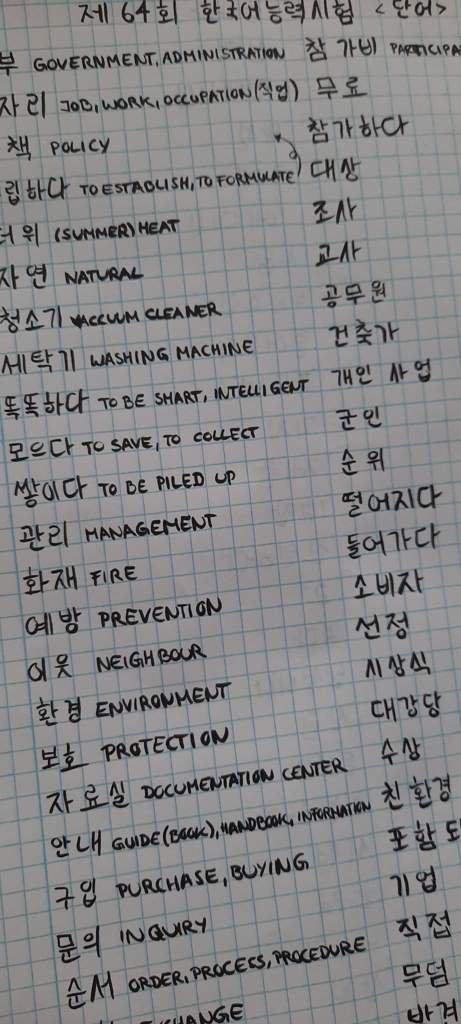 제 64회 한국어능력시험 <단어>
부 GOVERNMENT, ADMINISTRATION
자리 JOB, WORK, OCCUPATION (직업)
책 POLICY
립하다 TO ESTABLISH, TO FORMULATE
더위 (SUMMER) HEAT
자연 NATURAL
청소기 VACCUUM CLEANER
세탁기 WASHING MACHINE
똑똑하다 TO BE SMART, INTELLIGENT
모으다 TO SAVE, TO COLLECT
쌓이다 TO BE PILED UP
관리 MANAGEMENT
화재 FIRE
예방 PREVENTION
이웃 NEIGHBOUR
환경 ENVIRONMENT
보호 PROTECTION
자료실 DOCUMENTATION CENTER
안내 GUIDE (BOOK), HANDBOOK, INFORMATION
구입 PURCHASE, BUYING
문의 INQUIRY
순서 ORDER, PROCESS, PROCEDURE
CHANGE
참가비 PARTICIPA
무료
참가하다
대상
조사
교사
공무원
건축가
개인 사업
군인
순위
떨어지다
들어가다
소비자
선정
시상식
대강당
수상
친환경
포함되
기업
직접
무덤